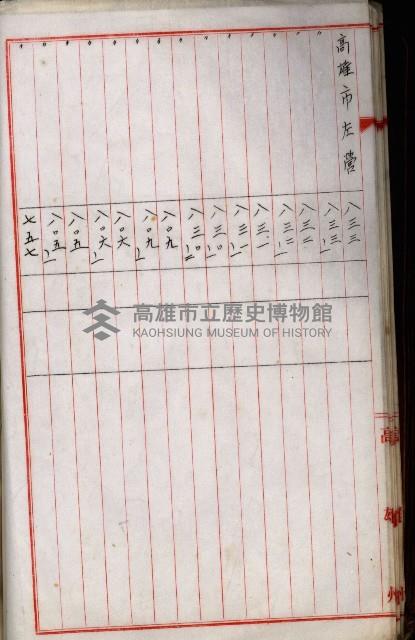 高雄市左營 八三三
〃 八三三ノ一
〃 八三二
〃 八三二ノ一
〃 八三一
〃 八三一ノ一
〃 八三〇ノ一
〃 八三〇ノ二
〃 八〇九
〃 八〇九ノ一
〃 八〇六
〃 八〇六ノ一
〃 八〇五
〃 八〇五ノ一
〃 七五七
高雄市立歷史博物館
KAOHSIUNG MUSEUM OF HISTORY
高雄州